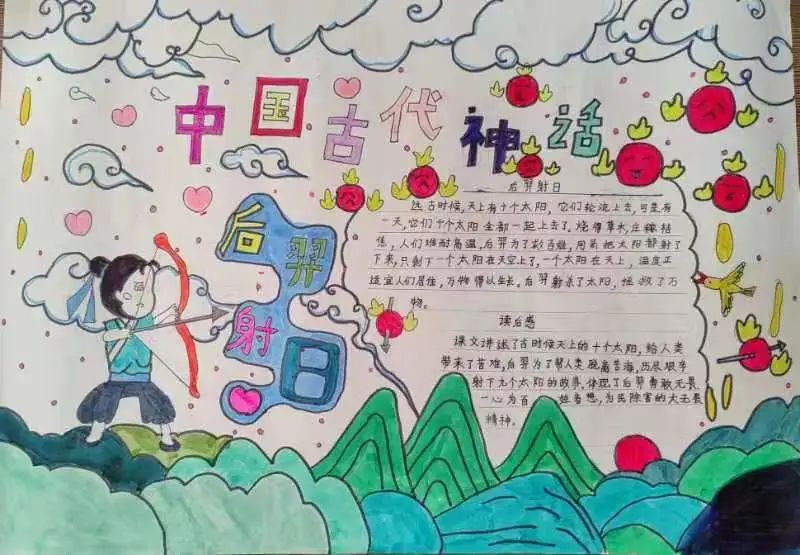 中国古代神话
后羿射日
后羿射日
远古时候,天上有十个太阳,它们轮流上去,可是有
一天,它们十个太阳全都一起上去了,烧得草木,庄稼枯
焦,人们难耐高温,后羿为了救百姓,用箭把太阳都射了
下来,只剩下一个太阳在天空上了,一个太阳在天上,温度正
适宜人们居住,万物得以生长。后羿射杀了太阳,拯救了万
物。
读后感
课文讲述了古时候天上的十个太阳,给人类
带来了苦难,后羿为了帮人类脱离苦海,历尽艰辛
射下九个太阳的故事,体现了后羿勇敢无畏
一心为百姓着想,为民除害的大无畏
精神。